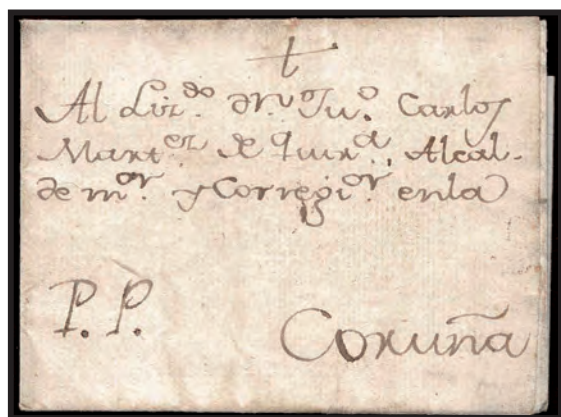 Al Liz.do Dn. Ju.o Carlos
Mart.ez de Quir.a, Alcal-
de m.or y Corregi.or enla
P. P. Coruña